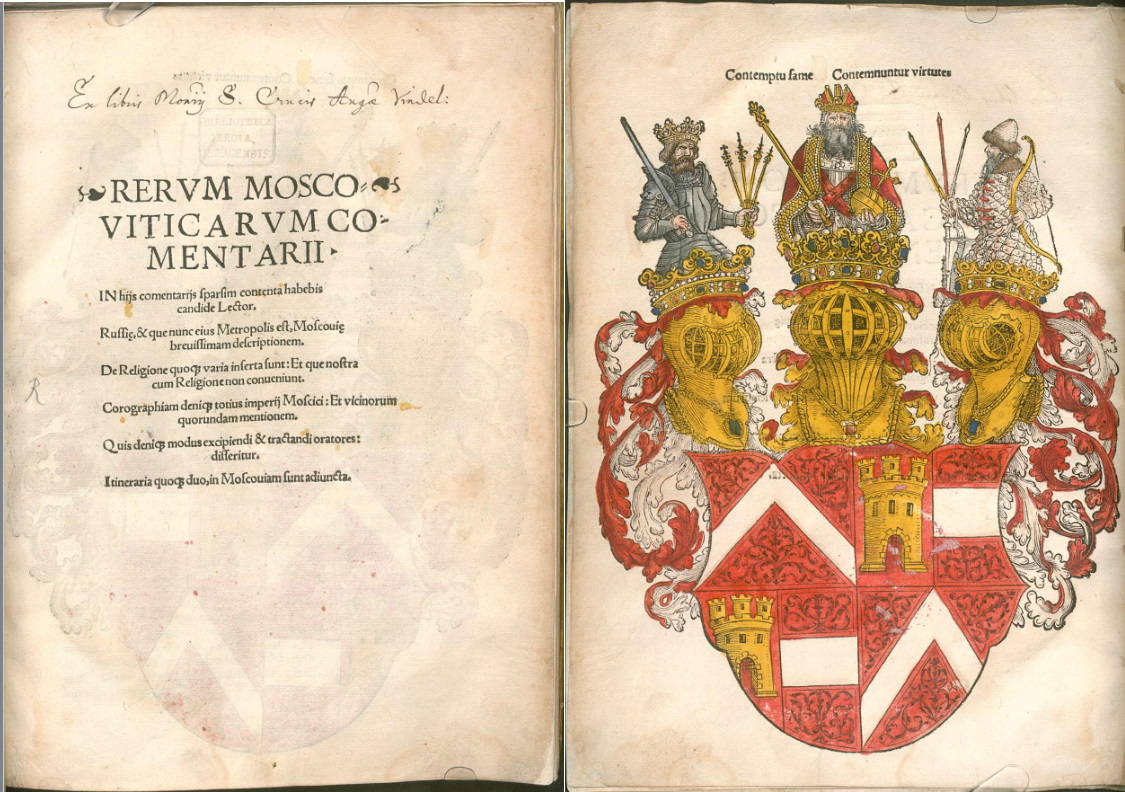 Ex libris Monrij S. Crucis Augæ Vindel:
BIBLIOTHECA
REGIA
MONACENSIS
RERVM MOSCO-
VITICARVM CO-
MENTARII
IN hijs comentarijs sparsim contenta habebis
candide Lector.
Russię, & que nunc eius Metropolis est, Moscouię
breuissimam descriptionem.
De Religione quoqȝ varia inserta sunt: Et que nostra
cum Religione non conueniunt.
Corographiam deniqȝ totius imperij Moscici: Et vicinorum
quorundam mentionem.
Quis deniqȝ modus excipiendi & tractandi oratores:
disseritur.
Itineraria quoqȝ duo, in Moscouiam sunt adiuncta.
R
Contemptu fame Contemnuntur virtutes